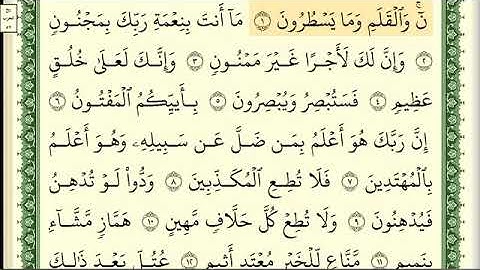 نٓ ۚ وَٱلۡقَلَمِ وَمَا يَسۡطُرُونَ ١ مَآ أَنتَ بِنِعۡمَةِ رَبِّكَ بِمَجۡنُونٖ
٢ وَإِنَّ لَكَ لَأَجۡرًا غَيۡرَ مَمۡنُونٖ ٣ وَإِنَّكَ لَعَلَىٰ خُلُقٍ
عَظِيمٖ ٤ فَسَتُبۡصِرُ وَيُبۡصِرُونَ ٥ بِأَييِّكُمُ ٱلۡمَفۡتُونُ ٦
إِنَّ رَبَّكَ هُوَ أَعۡلَمُ بِمَن ضَلَّ عَن سَبِيلِهِۦ وَهُوَ أَعۡلَمُ
بِٱلۡمُهۡتَدِينَ ٧ فَلَا تُطِعِ ٱلۡمُكَذِّبِينَ ٨ وَدُّواْ لَوۡ تُدۡهِنُ
فَيُدۡهِنُونَ ٩ وَلَا تُطِعۡ كُلَّ حَلَّافٖ مَّهِينٍ ١٠ هَمَّازٖ مَّشَّآءِۭ
بِنَمِيمٖ ١١ مَّنَّاعٖ لِّلۡخَيۡرِ مُعۡتَدٍ أَثِيمٍ ١٢ عُتُلِّۭ بَعۡدَ ذَٰلِكَ